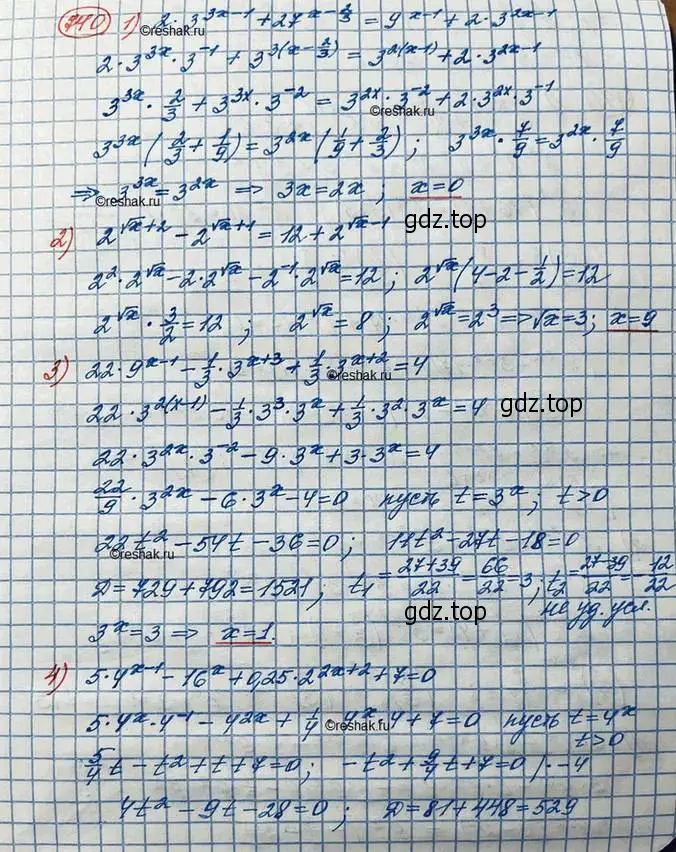 740 1) 2·3^(3x-1) + 27^(x-2/3) = 9^(x-1) + 2·3^(2x-1)
©reshak.ru
2·3^(3x)·3^(-1) + 3^(3(x-2/3)) = 3^(2(x-1)) + 2·3^(2x-1)
3^(3x)·2/3 + 3^(3x)·3^(-2) = 3^(2x)·3^(-2) + 2·3^(2x)·3^(-1)
©reshak.ru
3^(3x)(2/3 + 1/9) = 3^(2x)(1/9 + 2/3); 3^(3x)·7/9 = 3^(2x)·7/9
=> 3^(3x) = 3^(2x) => 3x = 2x; x=0
©reshak.ru
gdz.top
2) 2^(√x+2) - 2^(√x+1) = 12 + 2^(√x-1)
2^2·2^(√x) - 2·2^(√x) - 2^(-1)·2^(√x) = 12; 2^(√x)(4-2-1/2) = 12
2^(√x)·3/2 = 12; 2^(√x) = 8; 2^(√x) = 2^3 => √x = 3; x=9
3) 22·9^(x-1) - 1/3·3^(x+3) + 1/3·3^(x+2) = 4
©reshak.ru
22·3^(2(x-1)) - 1/3·3^3·3^x + 1/3·3^2·3^x = 4
gdz.top
22·3^(2x)·3^(-2) - 9·3^x + 3·3^x = 4
22/9·3^(2x) - 6·3^x - 4 = 0 пусть t=3^x; t>0
22t^2 - 54t - 36 = 0; 11t^2 - 27t - 18 = 0
©reshak.ru
D = 729+792 = 1521; t₁ = (27+39)/22 = 66/22 = 3; t₂ = (27-39)/22 = -12/22
gdz.top
не уд. усл.
3^x = 3 => x=1.
4) 5·4^(x-1) - 16^x + 0,25·2^(2x+2) + 7 = 0
5·4^x·4^(-1) - 4^(2x) + 1/4·4^x·4 + 7 = 0 пусть t=4^x
©reshak.ru
t>0
5/4t - t^2 + t + 7 = 0; -t^2 + 9/4t + 7 = 0 /·-4
4t^2 - 9t - 28 = 0; D = 81+448 = 529